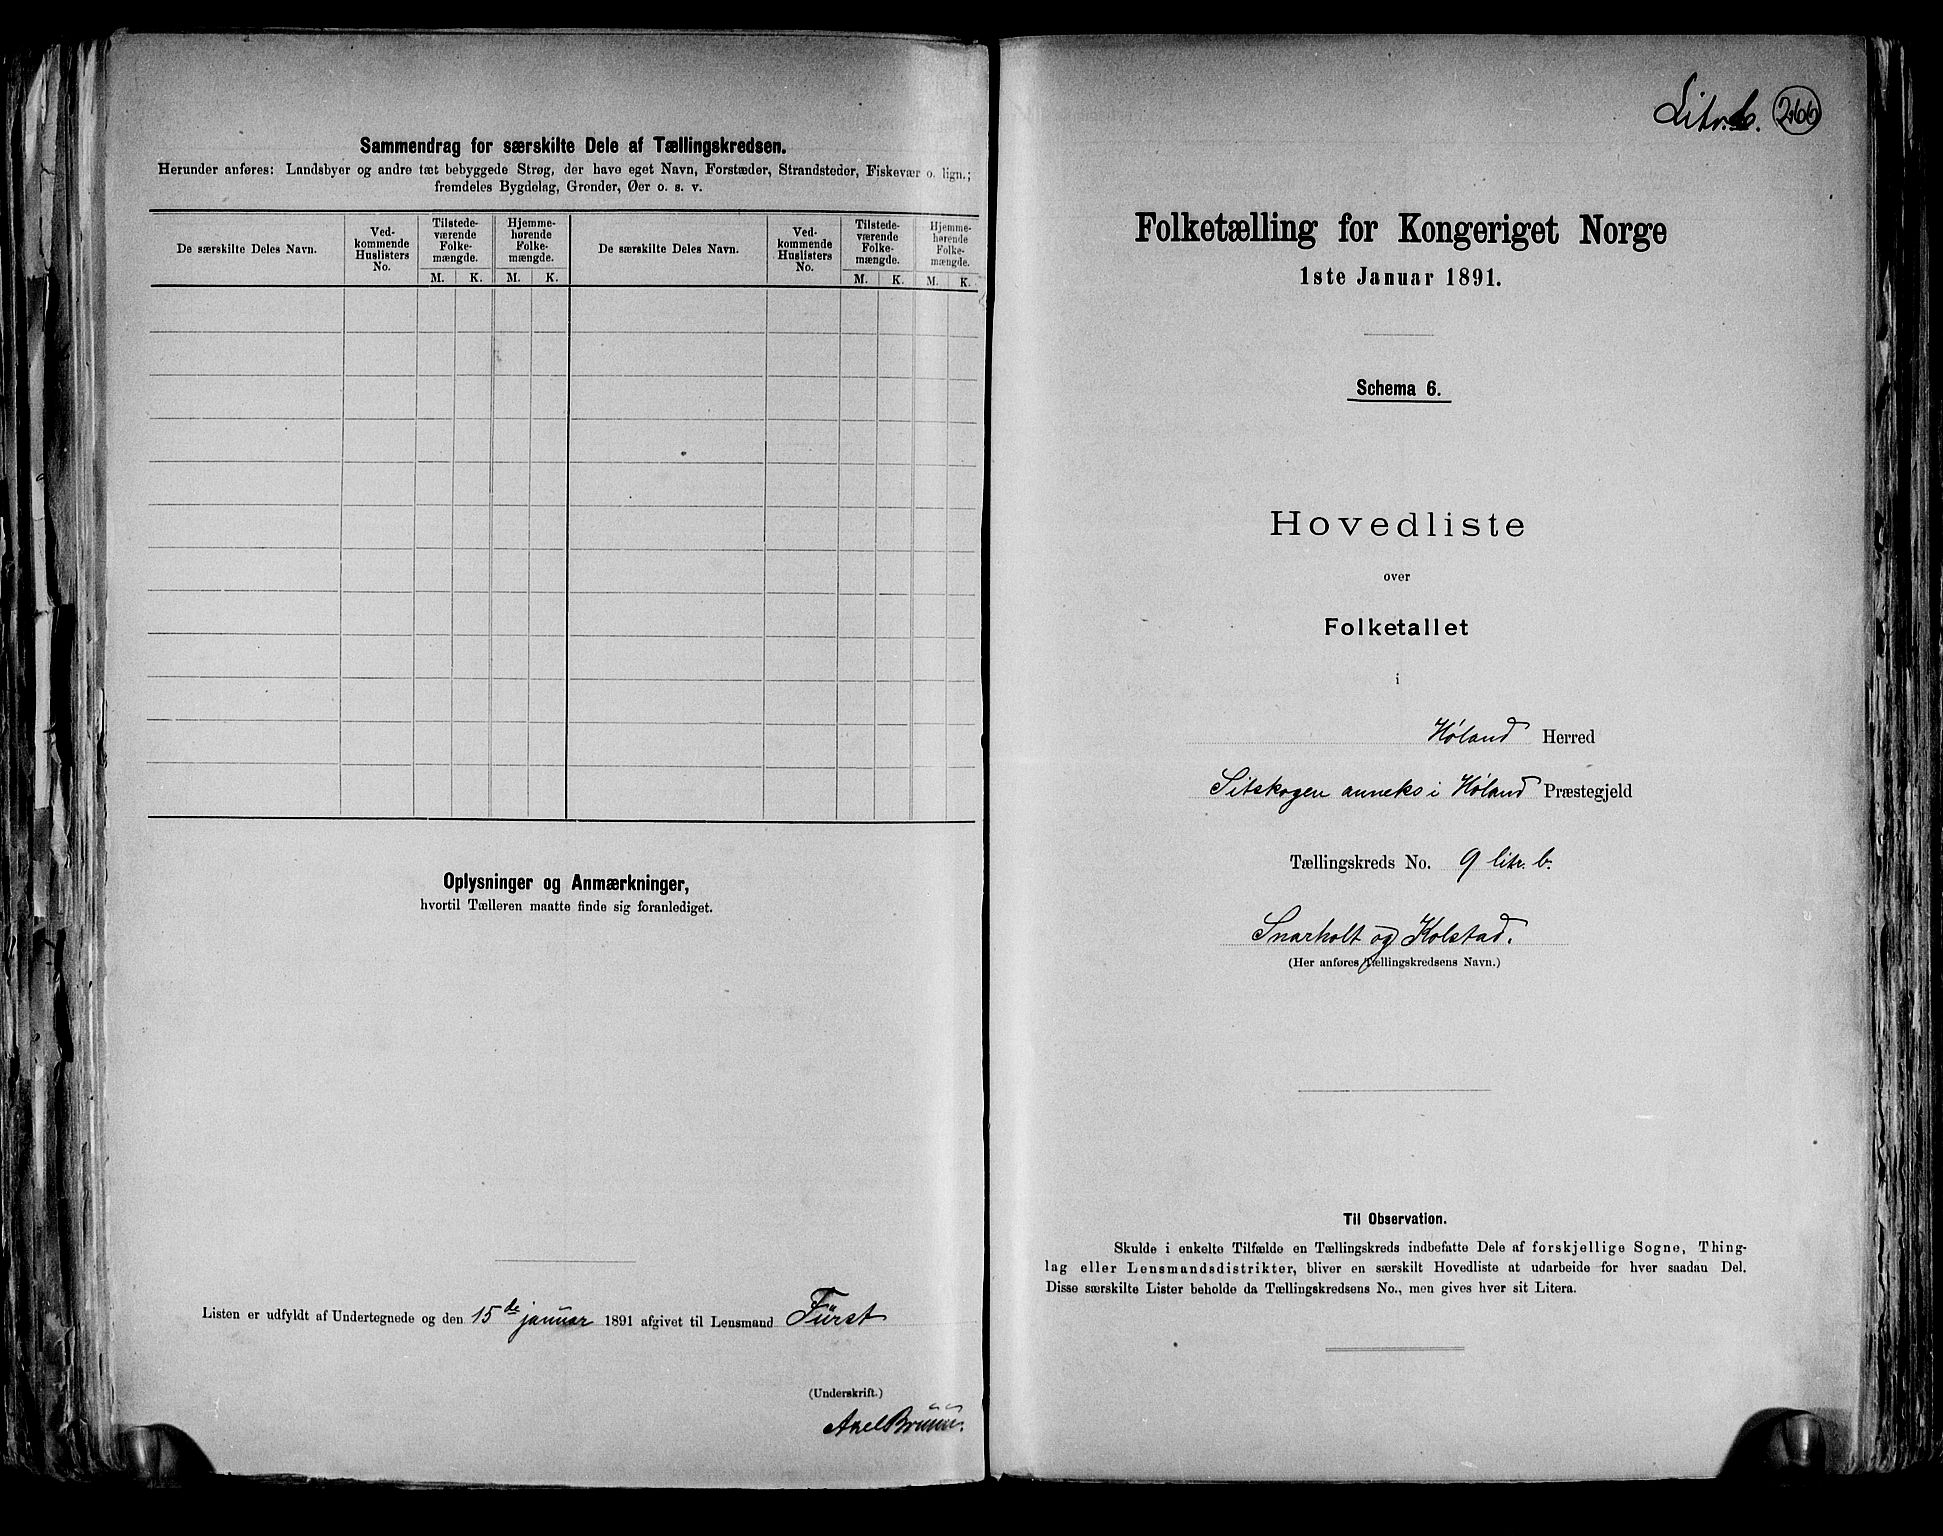 Sammendrag for særskilte Dele af Tællingskredsen.
Herunder anføres: Landsbyer og andre tæt bebyggede Strøg, der have eget Navn, Forstæder, Strandsteder, Fiskevær o. lign.;
fremdeles Bygdelag, Grender, Øer o. s. v.
De særskilte Deles Navn.
Ved-
kommende
Huslisters
No.
Tilstede-
værende
Folke-
mængde.
Hjemme-
hørende
Folke-
mængde.
De særskilte Deles Navn.
Ved-
kommende
Huslisters
No.
Tilstede-
værende
Folke-
mængde.
Hjemme-
hørende
Folke-
mængde.
M. K. M. K. M. K. M. K.
Oplysninger og Anmærkninger,
hvortil Tælleren maatte finde sig foranlediget.
Listen er udfyldt af Undertegnede og den 15de januar 1891 afgivet til Lensmand Fürst
(Underskrift.)
Axel Bruun.
Litr. b. 266
Folketælling for Kongeriget Norge
1ste Januar 1891.
Schema 6.
Hovedliste
over
Folketallet
i
Høland Herred
Sitskogen anneks i Høland Præstegjeld
Tællingskreds No. 9 litr. b.
Snarholt og Kolstad.
(Her anføres Tællingskredsens Navn.)
Til Observation.
Skulde i enkelte Tilfælde en Tællingskreds indbefatte Dele af forskjellige Sogne, Thing-
lag eller Lensmandsdistrikter, bliver en særskilt Hovedliste at udarbeide for hver saadan Del.
Disse særskilte Lister beholde da Tællingskredsens No., men gives hver sit Litera.